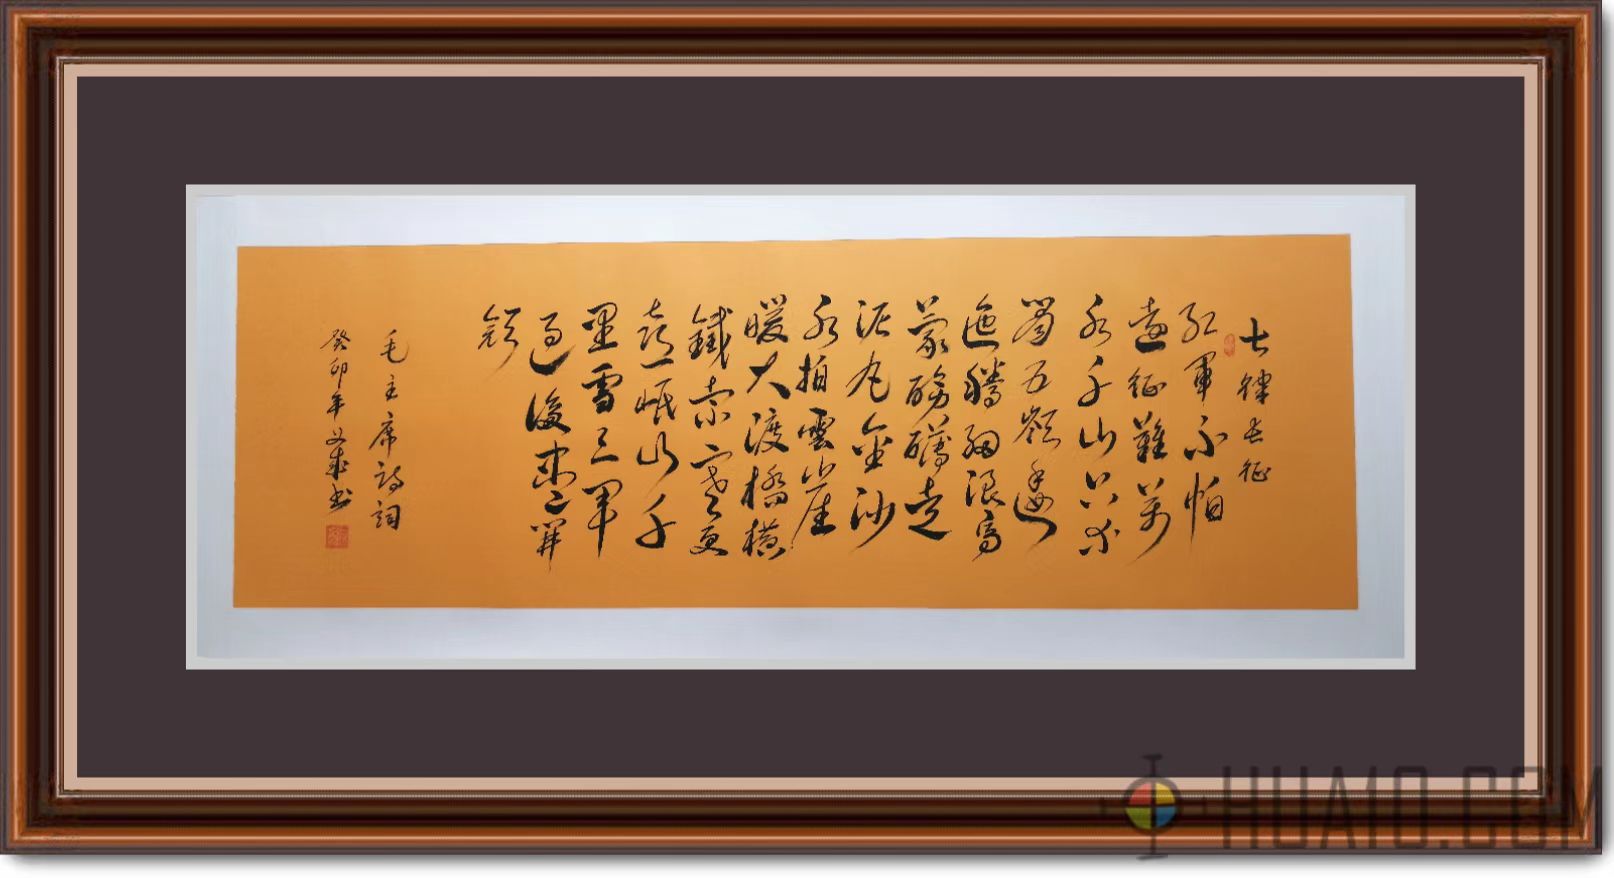 七律長征
紅軍不怕
遠征難萬
水千山只等
閒五嶺逶
迤騰細浪烏
蒙磅礴走
泥丸金沙
水拍雲崖
暖大渡橋橫
鐵索寒更
喜岷山千
里雪三軍
過後盡開
顏
毛主席詩詞
癸卯年文成书
HUA10.COM